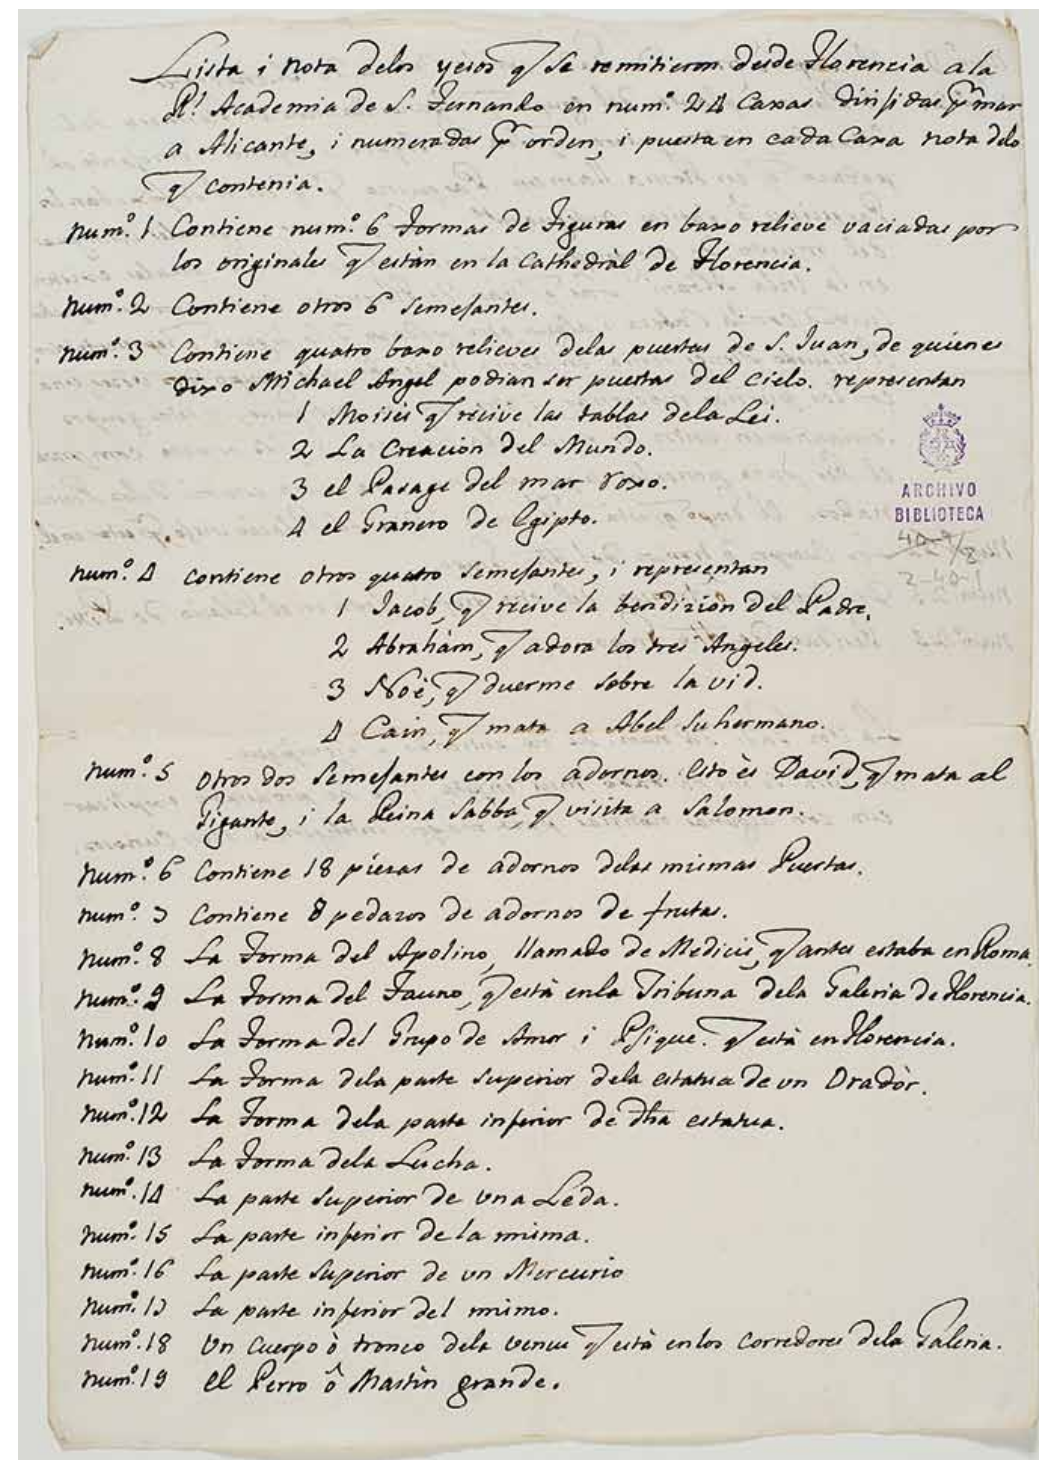 Lista i nota delos yesos q̃ se remitieron desde Florencia a la
Rl. Academia de S. Fernando en numº. 24 Caxas dirijidas pr mar
a Alicante, i numeradas pr orden, i puesta en cada Caxa nota delo
q̃ contenia.
Numº. 1 Contiene numº. 6 Formas de Figuras en baxo relieve vaciadas por
los originales q̃ estàn en la Cathedràl de Florencia.
Numº. 2 Contiene otros 6 semejantes.
Numº. 3 Contiene quatro baxo relieves delas puertas de S. Juan, de quienes
dixo Michael Angel podian ser puertas del cielo. representan
1 Moisès q̃ recive las tablas dela Lei.
2 La Creacion del Mundo.
3 el Pasage del mar roxo.
4 el Granero de Egipto.
Numº. 4 Contiene otros quatro semejantes, i representan
1 Jacob, q̃ recive la bendizion del Padre.
2 Abrahàm, q̃ adora los tres Angeles.
3 Noè, q̃ duerme sobre la vid.
4 Cain, q̃ mata a Abel su hermano.
Numº. 5 Otros dos semejantes con los adornos. esto ès David, q̃ mata al
Gigante, i la Reina Sabba, q̃ visita a Salomon.
Numº. 6 Contiene 18 piezas de adornos delas mismas Puertas.
Numº. 7 Contiene 8 pedazos de adornos de frutas.
Numº. 8 La Forma del Apolino, llamado de Medicis, q̃ antes estaba en Roma.
Numº. 9 La Forma del Fauno, q̃ està enla Tribuna dela Galeria de Florencia.
Numº. 10 La Forma del Grupo de Amor i Psique. q̃ està en Florencia.
Numº. 11 La Forma dela parte superior dela estatua de un Oradòr.
Numº. 12 La Forma dela parte inferior de dha estatua.
Numº. 13 La Forma dela Lucha.
Numº. 14 La parte superior de una Leda.
Numº. 15 La parte inferior de la misma.
Numº. 16 La parte superior de un Mercurio
Numº. 17 La parte inferior del mismo.
Numº. 18 Un Cuerpo ò tronco dela venus q̃ està enlos corredores dela Galeria.
Numº. 19 el Perro ô Mastin grande.
ARCHIVO
BIBLIOTECA